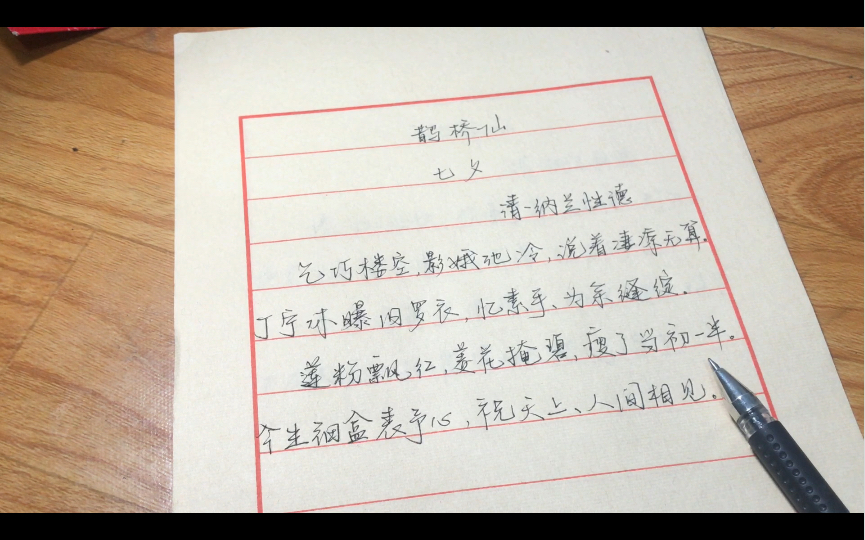 鹊桥仙
七夕
清·纳兰性德
乞巧楼空,影娥池冷,说着凄凉无算。
丁宁休曝旧罗衣,忆素手、为余缝绽。
莲粉飘红,菱花掩碧,瘦了当初一半。
今生钿盒表予心,祝天上、人间相见。